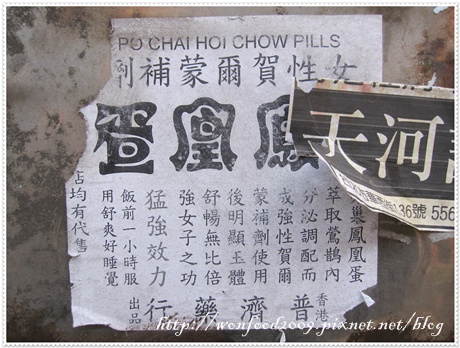 PO CHAI HOI CHOW PILLS
女性賀爾蒙補劑
鳳凰
巢鳳凰蛋
萃取鶯鵲內
分泌調配而
成強性賀爾
蒙補劑使用
後明顯玉體
舒暢無比倍
強女子之功
猛強效力
飯前一小時服
用舒爽好睡覺
店均有代售
香港普濟藥行出品
天河
36號 556
http://wonfood2009.pixnet.net/blog